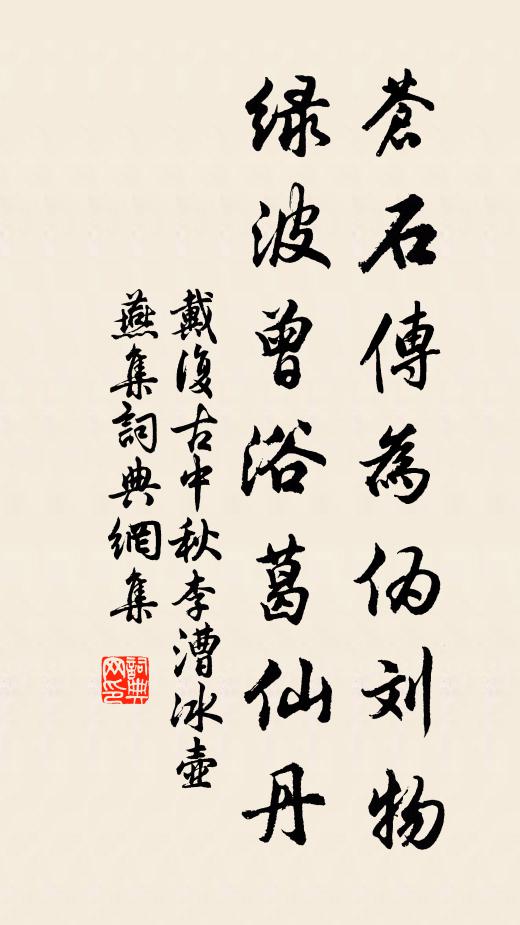 蒼石傳為伪刘物
绿波曾浴葛仙丹
戴復古中秋李漕冰壺
燕集詞典網集
詞典网印